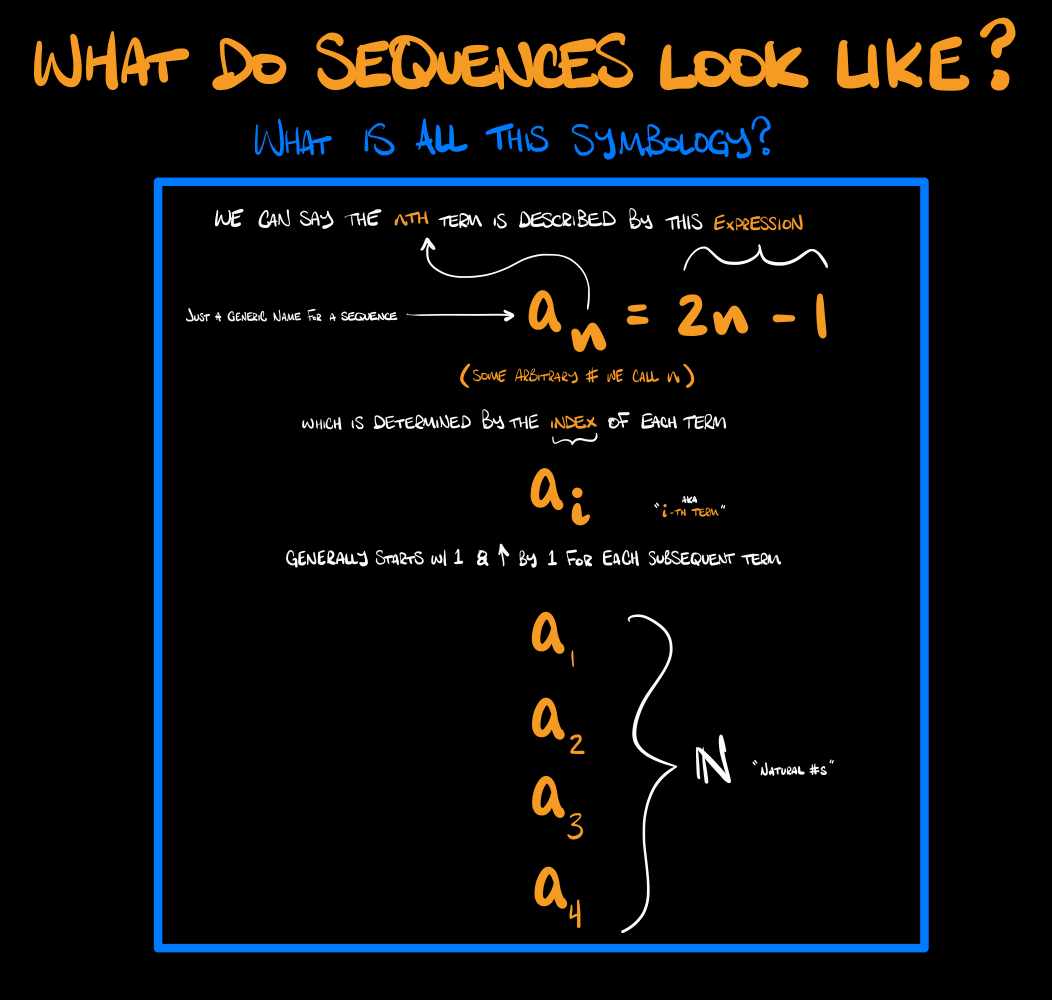 WHAT DO SEQUENCES LOOK LIKE?
WHAT IS ALL THIS SYMBOLOGY?
WE CAN SAY THE nTH TERM IS DESCRIBED BY THIS EXPRESSION
JUST A GENERIC NAME FOR A SEQUENCE
aₙ = 2n - 1
(SOME ARBITRARY # WE CALL n)
WHICH IS DETERMINED BY THE INDEX OF EACH TERM
aᵢ
AKA
"i-TH TERM"
GENERALLY STARTS W/ 1 & ↑ BY 1 FOR EACH SUBSEQUENT TERM
a₁
a₂
ℕ "NATURAL #S"
a₃
a₄